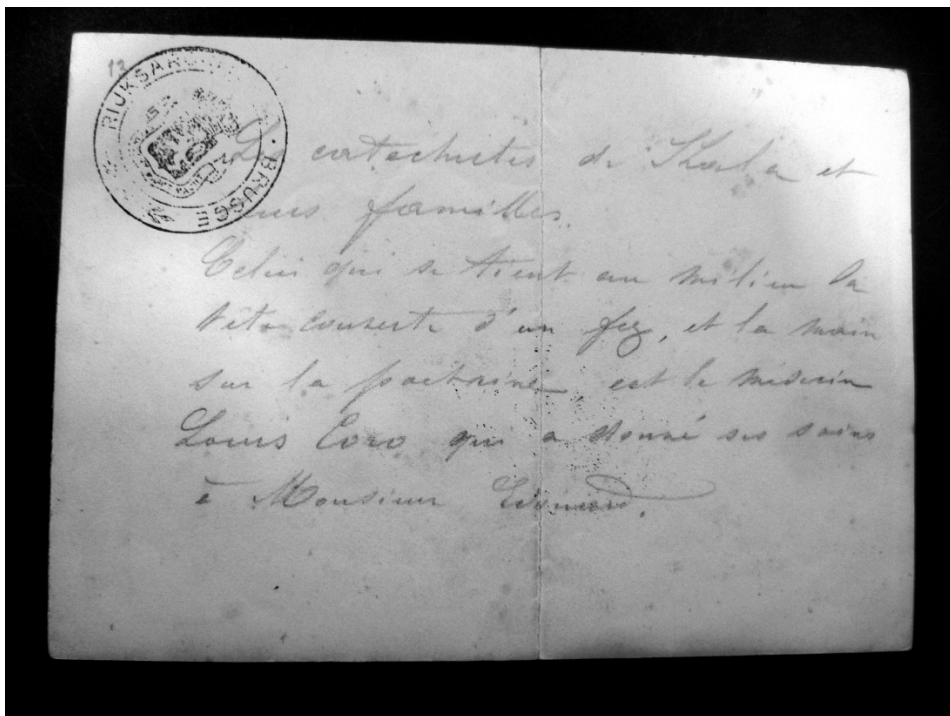 12
RIJKSAR BRUGGE
catechistes de et
leurs familles.
Celui qui se tient au milieu la
tête couverte d'un fez, et la main
sur la poitrine, est le médecin
Louis qui a donné ses soins
à Monsieur